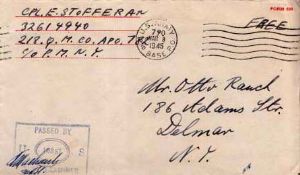 CPL. E. STOFFERAN
32614940
218 Q.M. CO. APO. 7
℅ P.M. N.Y.
U.S. ARMY
MAR 8
1945
BASE
FREE
Mr. Otto Rauch
186 Adams Str.
Delmar
N. Y.
PASSED BY
U S